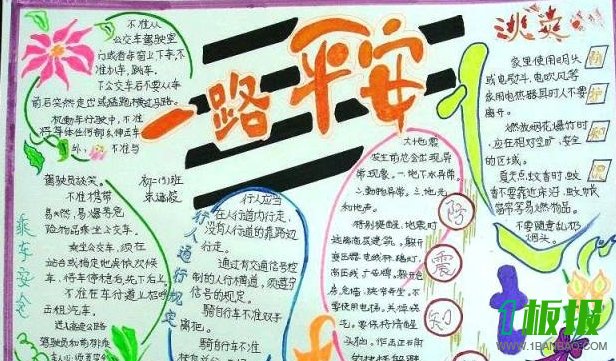 一路平安
不准从
公交车驾驶室
门或者车窗上下车,不
准扒车、跳车。
下公交车后不要从车
前后突然走出或猛跑横过马路。
机动车行驶中,不准
将身体任何部分伸出车
外,不准与
驾驶员谈笑。
不准携带
易燃、易爆等危
险物品乘坐公交车。
乘坐公交车,须在
站台或指定地点依次候
车,待车停稳后,先下后上
不准在车行道上招呼
出租汽车。
乘车安全
初二(3)班
行人应当
在人行道内行走,
没有人行道的靠路边
行走。
通过有交通信号控
制的人行横道,须遵守
信号的规定。
骑自行车不准双手
离把。
骑自行车不准
行人通行规定
大地震
发生前总会出现异
常现象。一.地下水异常。
二.动物异常。三.地光
和地声。
特别提醒,地震时
远离高层建筑,躲开
变压器、电线杆、路灯、
高压线、广告牌,
防
震
知
家里使用明火
或电熨斗、电吹风等
家用电热器具时人不要
离开。
燃放烟花、爆竹时
,应在相对空旷、安全
的区域。
夏天点蚊香时,蚊
香要靠近床沿、蚊帐
窗帘等易燃物品。
不要随意乱扔
烟头。
1板报
WWW.1BANBAO.COM